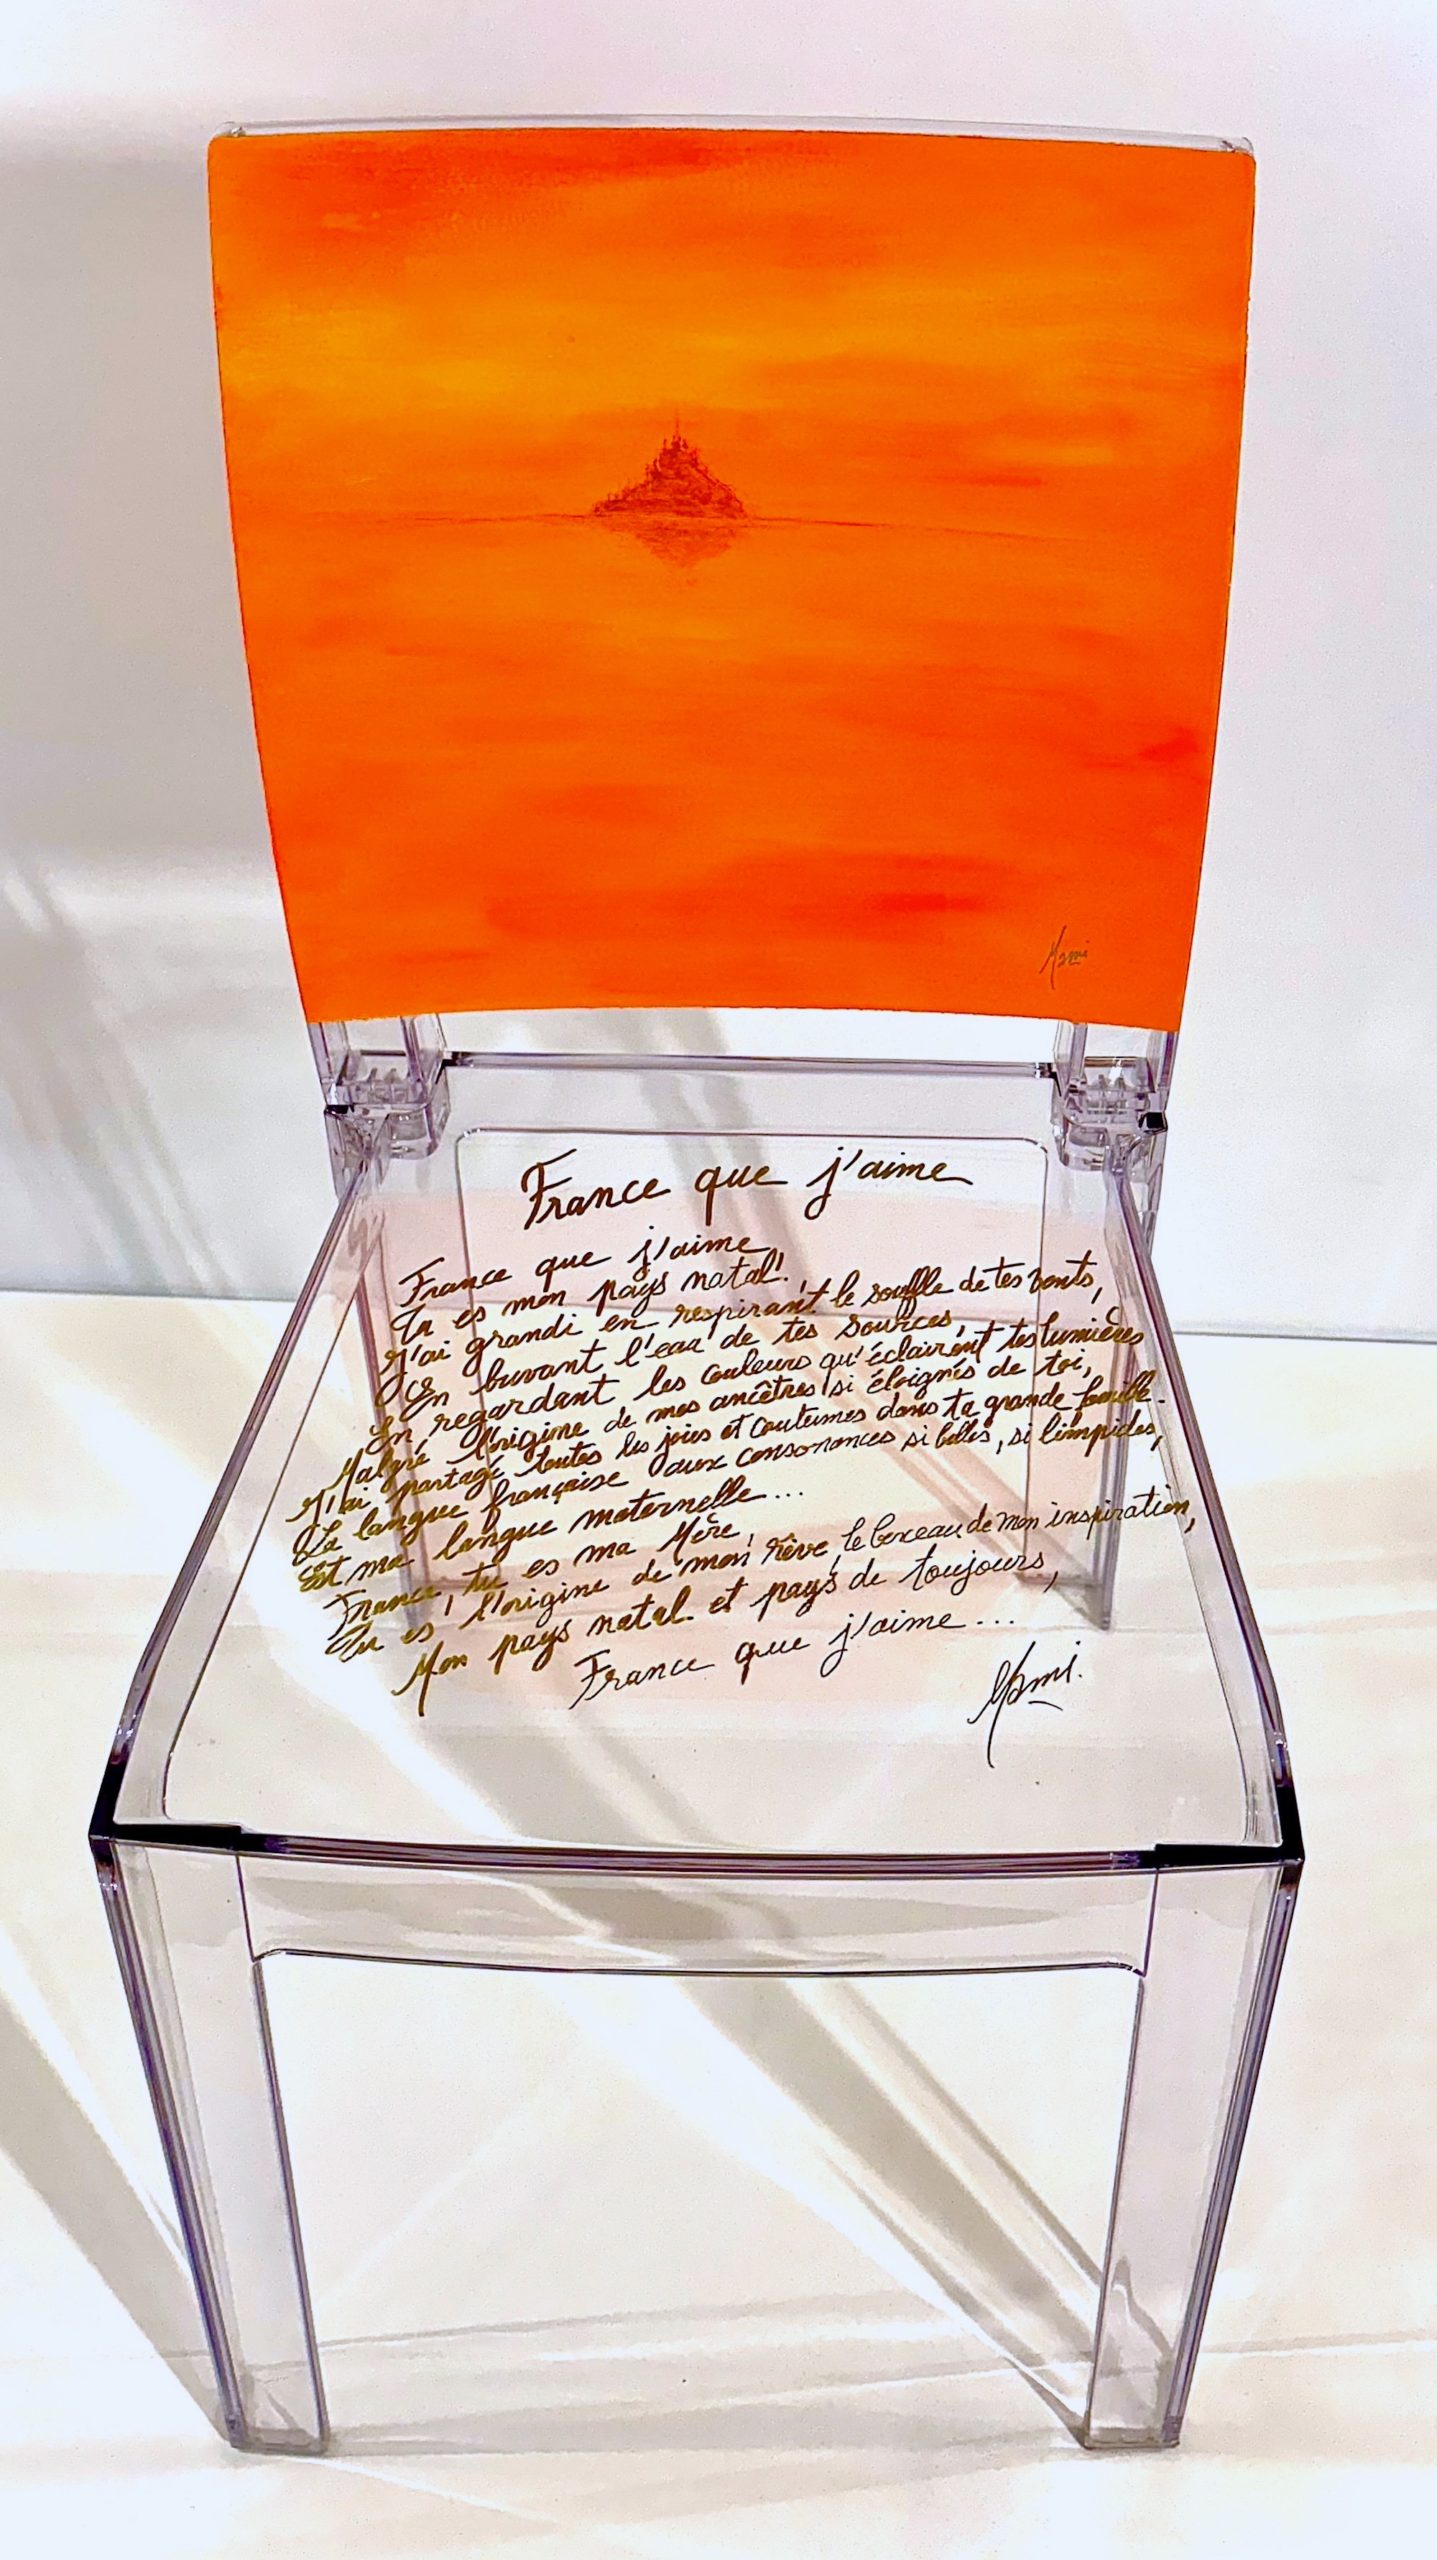 Mami
France que j'aime
France que j'aime,
Tu es mon pays natal.
J'ai grandi en respirant le souffle de tes vents,
En buvant l'eau de tes sources,
En regardant les couleurs qu'éclairent tes lumières
Malgré l'origine de mes ancêtres si éloignés de toi,
J'ai partagé toutes les joies et coutumes dans ta grande famille.
La langue française aux consonances si belles, si limpides,
Est ma langue maternelle...
France, tu es ma Mère,
Tu es l'origine de mon rêve, le berceau de mon inspiration,
Mon pays natal et pays de toujours,
France que j'aime...
Mami.